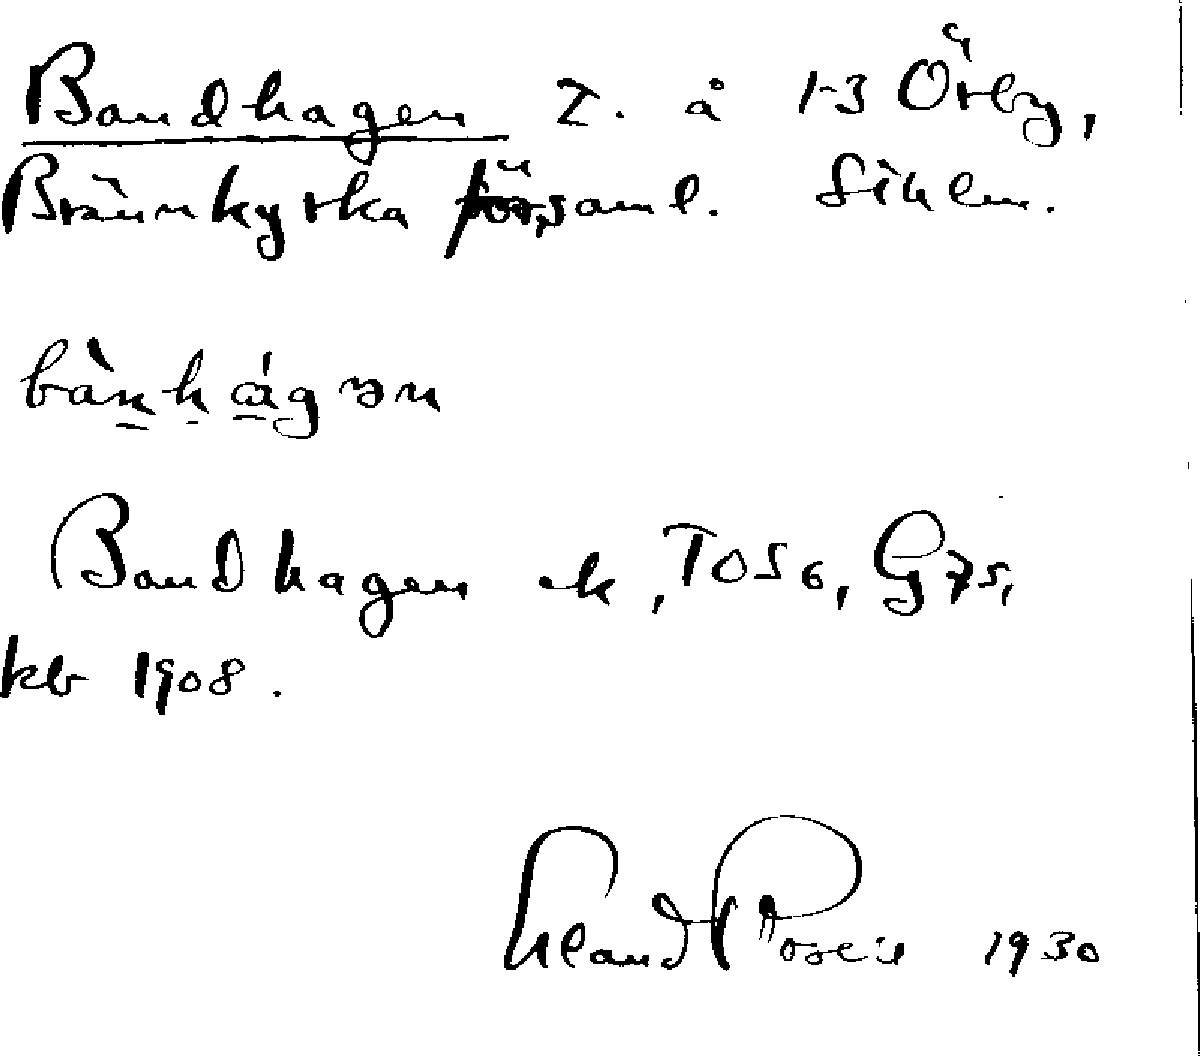 Bandhagen T. å 1-3 Örby,
Brännkyrka församl. Sthlm.
bànhágən
Bandhagen ek, TOS6, G75,
kb 1908.
1930